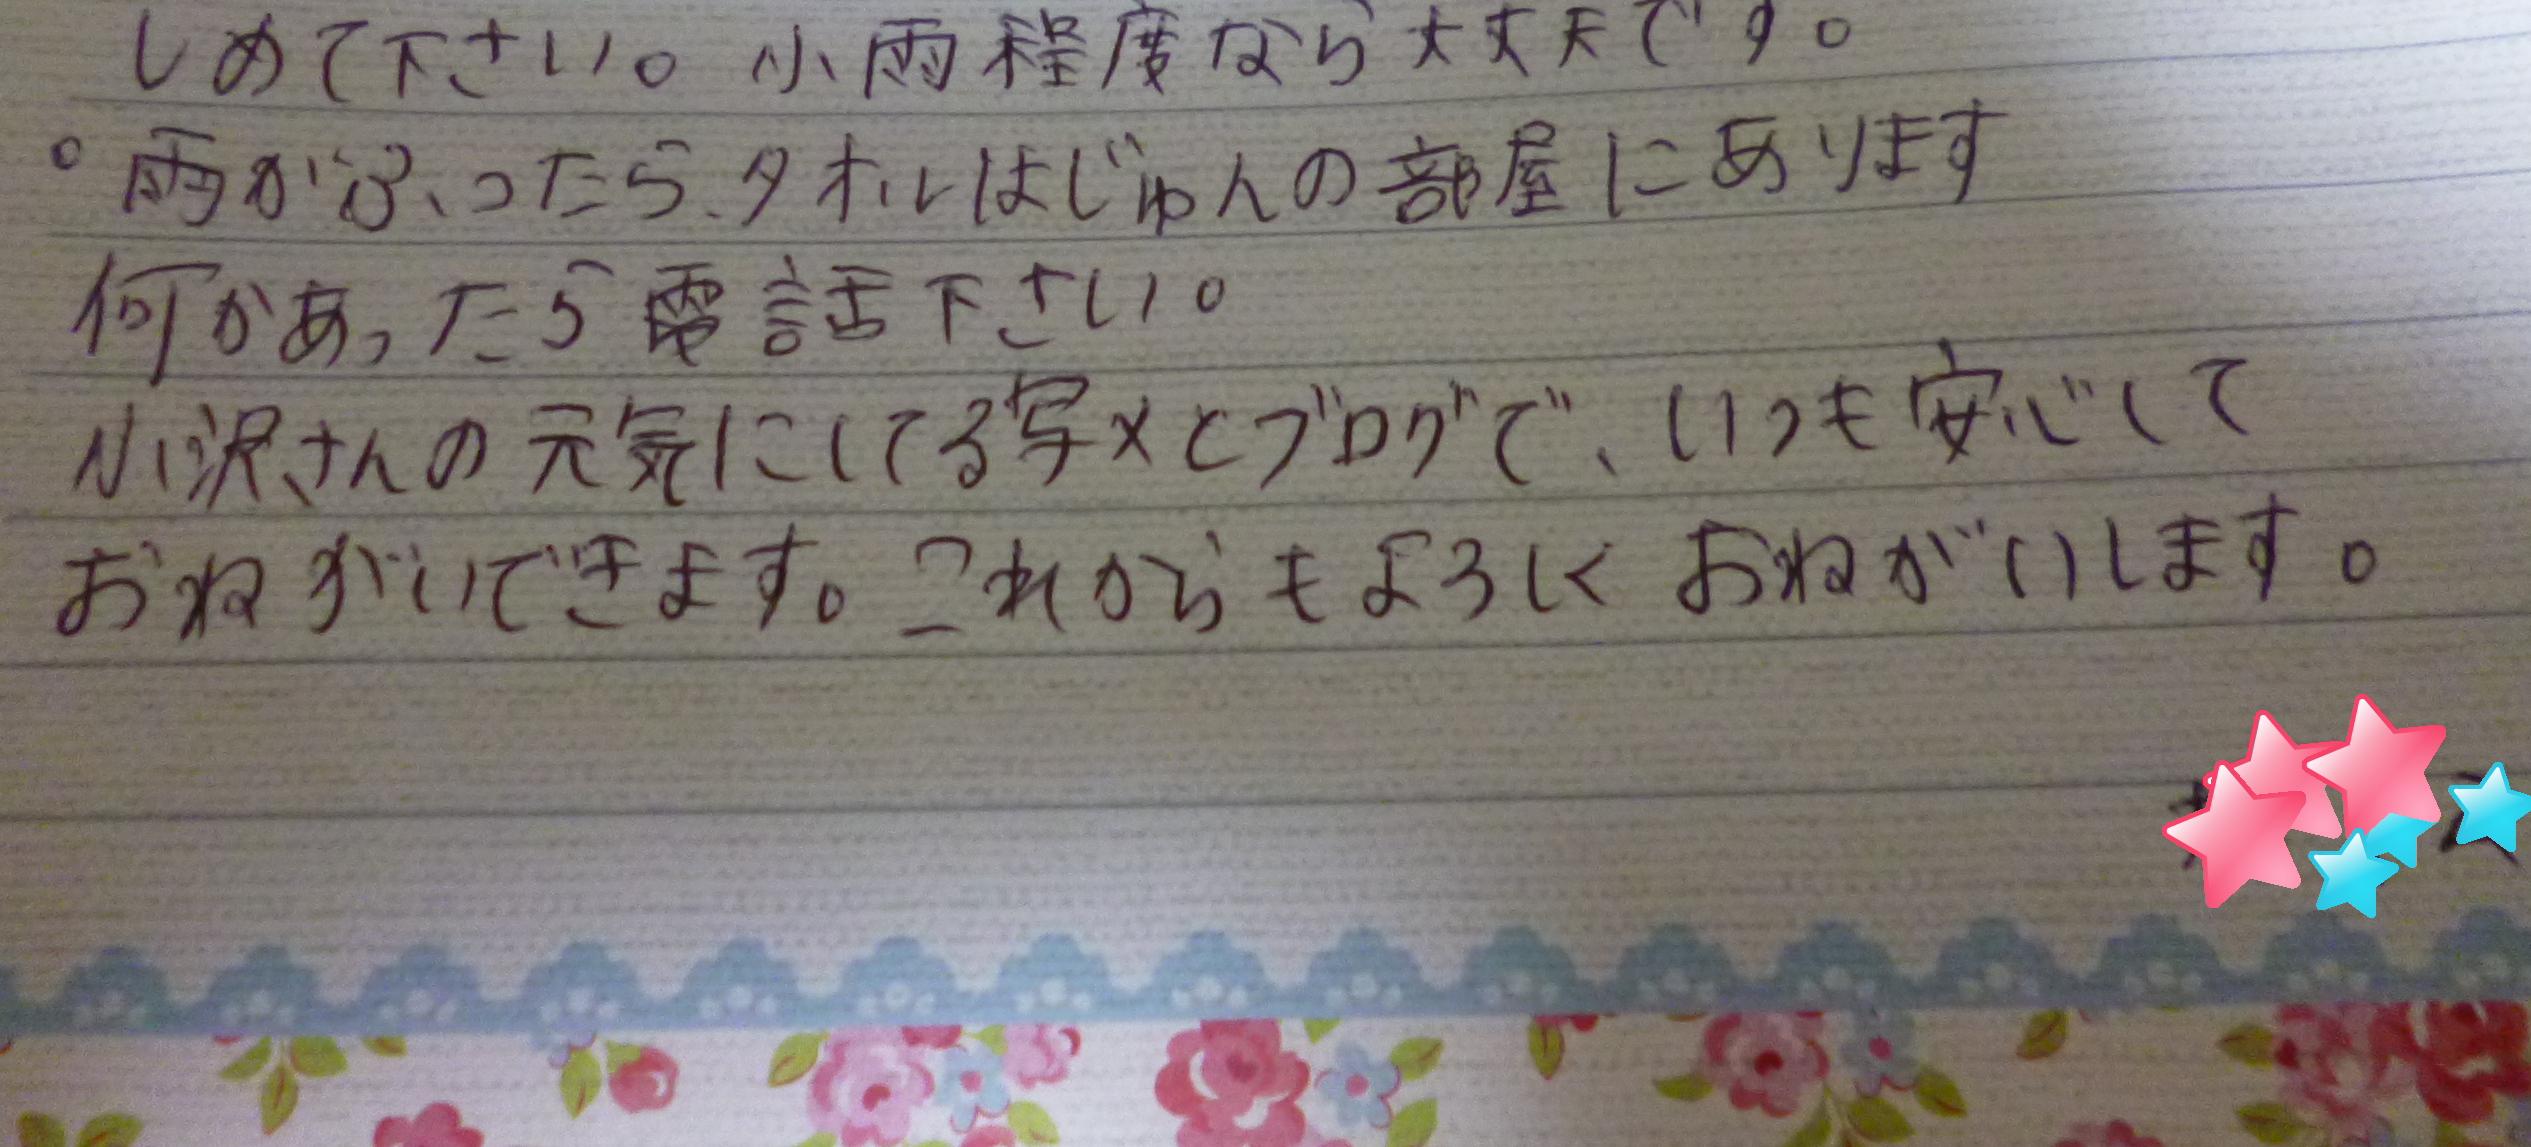 しめて下さい。小雨程度なら大丈夫です。
○雨がふったら、タオルはじゅんの部屋にあります
何かあったら電話下さい。
小沢さんの元気にしてる写メとブログで、いつも安心して
おねがいできます。これからもよろしくおねがいします。